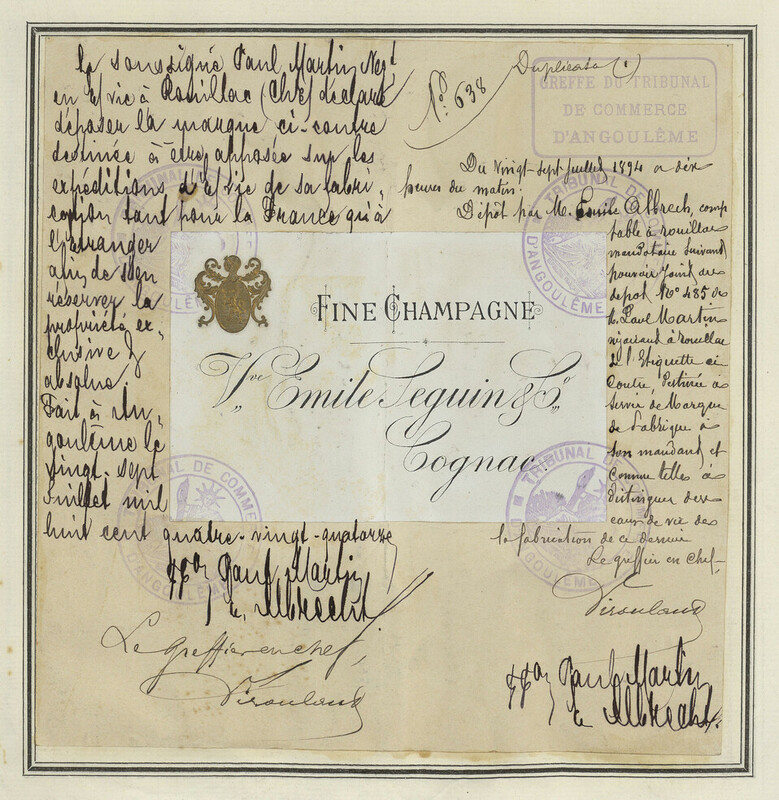 Le soussigné Paul Martin Negt
en E/vie à Rouillac (Chte) déclare
déposer la marque ci-contre
destinée à être apposée sur les
expéditions d'E/vie de sa fabri-
cation tant pour la France qu'à
l'étranger
afin de s'en
réserver la
propriété ex-
clusive &
absolue.
Fait à An-
goulême le
vingt-sept
Juillet mil
huit cent quatre-vingt-quatorze
Ppon Paul Martin
E. Albrecht
Le Greffier en chef,
Virouland
No. 638
Duplicata (1)
GREFFE DU TRIBUNAL
DE COMMERCE
D'ANGOULÊME
Du vingt-sept juillet 1894 à dix
heures du matin.
Dépôt par M. Emile Albrech, comp
table à rouillac
mandataire suivant
pouvoir joint au
depot No 485 de
M. Paul Martin
négociant à rouillac
de l'Etiquette ci
contre, destinée à
servir de Marque
de Fabrique à
son mandant et
comme telles à
distinguer des
eaux de vie de
la fabrication de ce dernier
Le greffier en chef,
Virouland
Ppon Paul Martin
E. Albrecht
FINE CHAMPAGNE
Vve Emile Seguin & Co.
Cognac
TRIBUNAL DE COMMERCE
D'ANGOULÊME
TRIBUNAL DE
D'ANGOULÊME
TRIBUNAL DE COMMERCE
D'ANGOULÊME
TRIBUNAL DE
D'ANGOULÊME